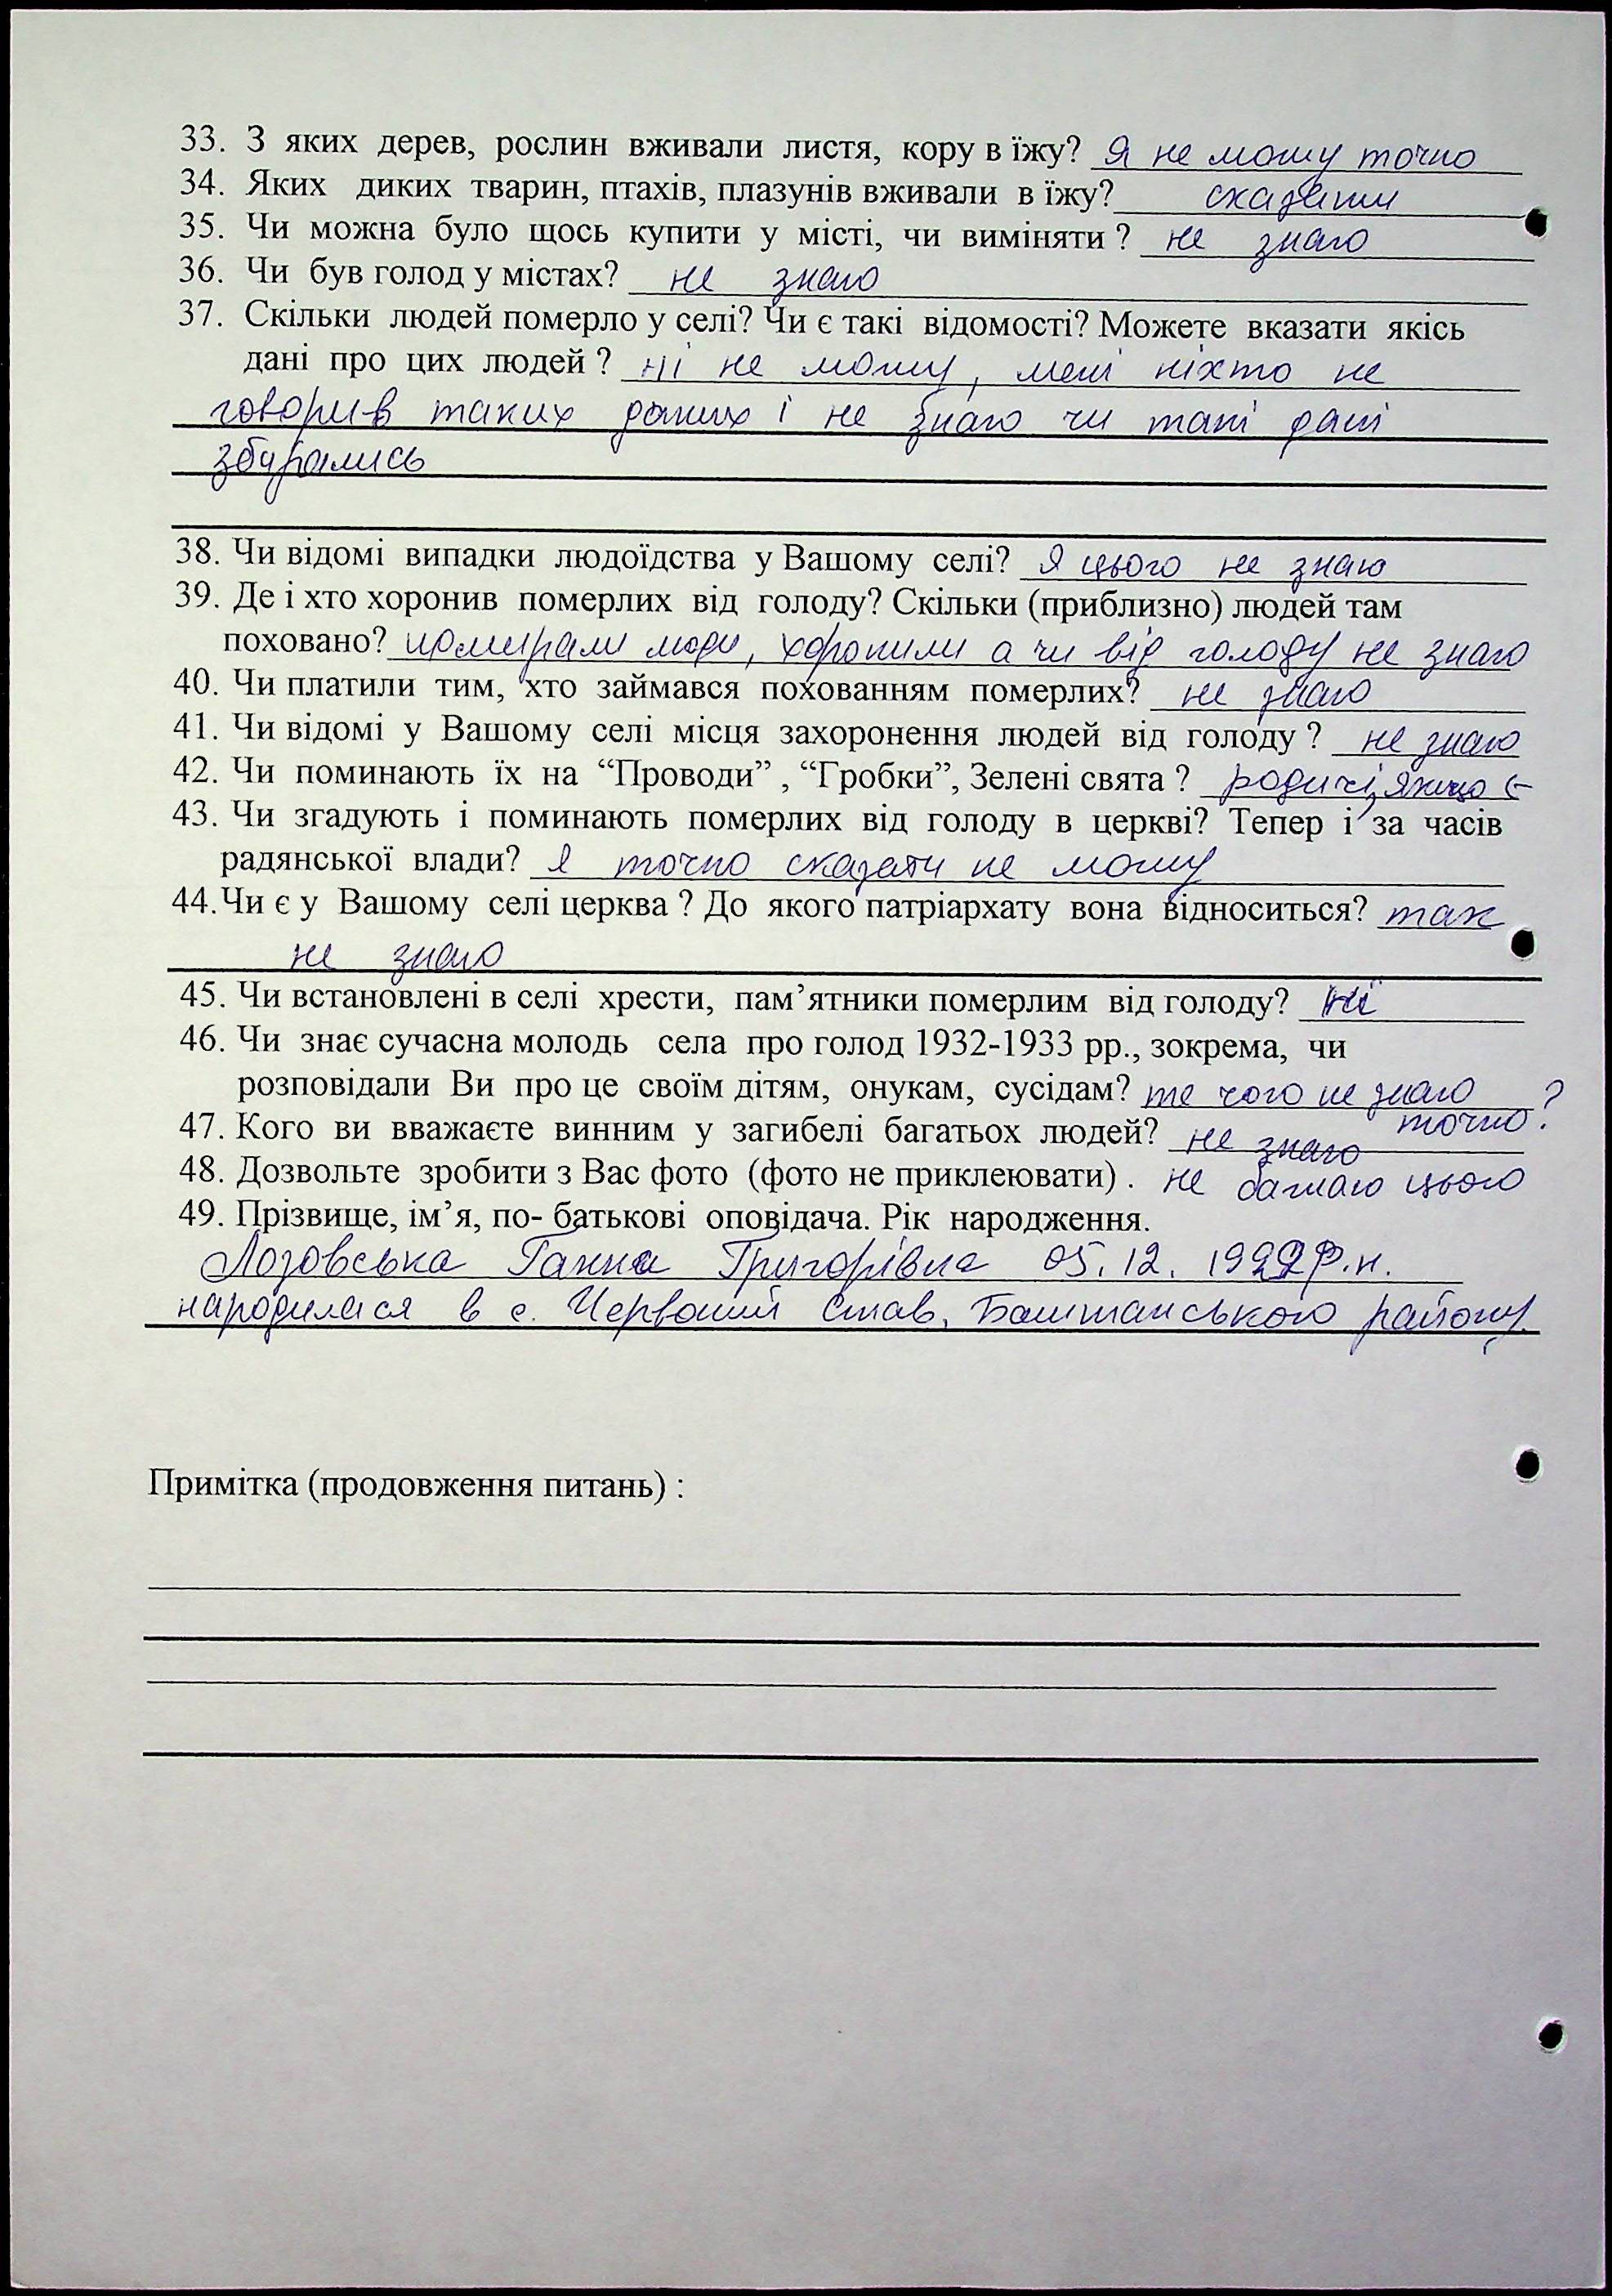 33. З яких дерев, рослин вживали листя, кору в їжу? Я не можу точно
34. Яких диких тварин, птахів, плазунів вживали в їжу? сказати
35. Чи можна було щось купити у місті, чи виміняти ? не знаю
36. Чи був голод у містах? не знаю
37. Скільки людей померло у селі? Чи є такі відомості? Можете вказати якісь
дані про цих людей ? ні не можу, мені ніхто не
говорив таких даних і не знаю чи такі дані
збирались
38. Чи відомі випадки людоїдства у Вашому селі? Я цього не знаю
39. Де і хто хоронив померлих від голоду? Скільки (приблизно) людей там
поховано? помирали люди, хоронили а чи від голоду не знаю
40. Чи платили тим, хто займався похованням померлих? не знаю
41. Чи відомі у Вашому селі місця захоронення людей від голоду ? не знаю
42. Чи поминають їх на “Проводи” , “Гробки”, Зелені свята ? родичі, якщо є
43. Чи згадують і поминають померлих від голоду в церкві? Тепер і за часів
радянської влади? я точно сказати не можу
44. Чи є у Вашому селі церква ? До якого патріархату вона відноситься? так
не знаю
45. Чи встановлені в селі хрести, пам’ятники померлим від голоду? ні
46. Чи знає сучасна молодь села про голод 1932-1933 рр., зокрема, чи
розповідали Ви про це своїм дітям, онукам, сусідам? те чого не знаю ?
точно.
47. Кого ви вважаєте винним у загибелі багатьох людей? не знаю
48. Дозвольте зробити з Вас фото (фото не приклеювати) . не бажаю цього
49. Прізвище, ім’я, по- батькові оповідача. Рік народження.
Лозовська Ганна Григорівна 05. 12. р.н.
народилася в с. Червоний Став, Баштанського району.
Примітка (продовження питань) :